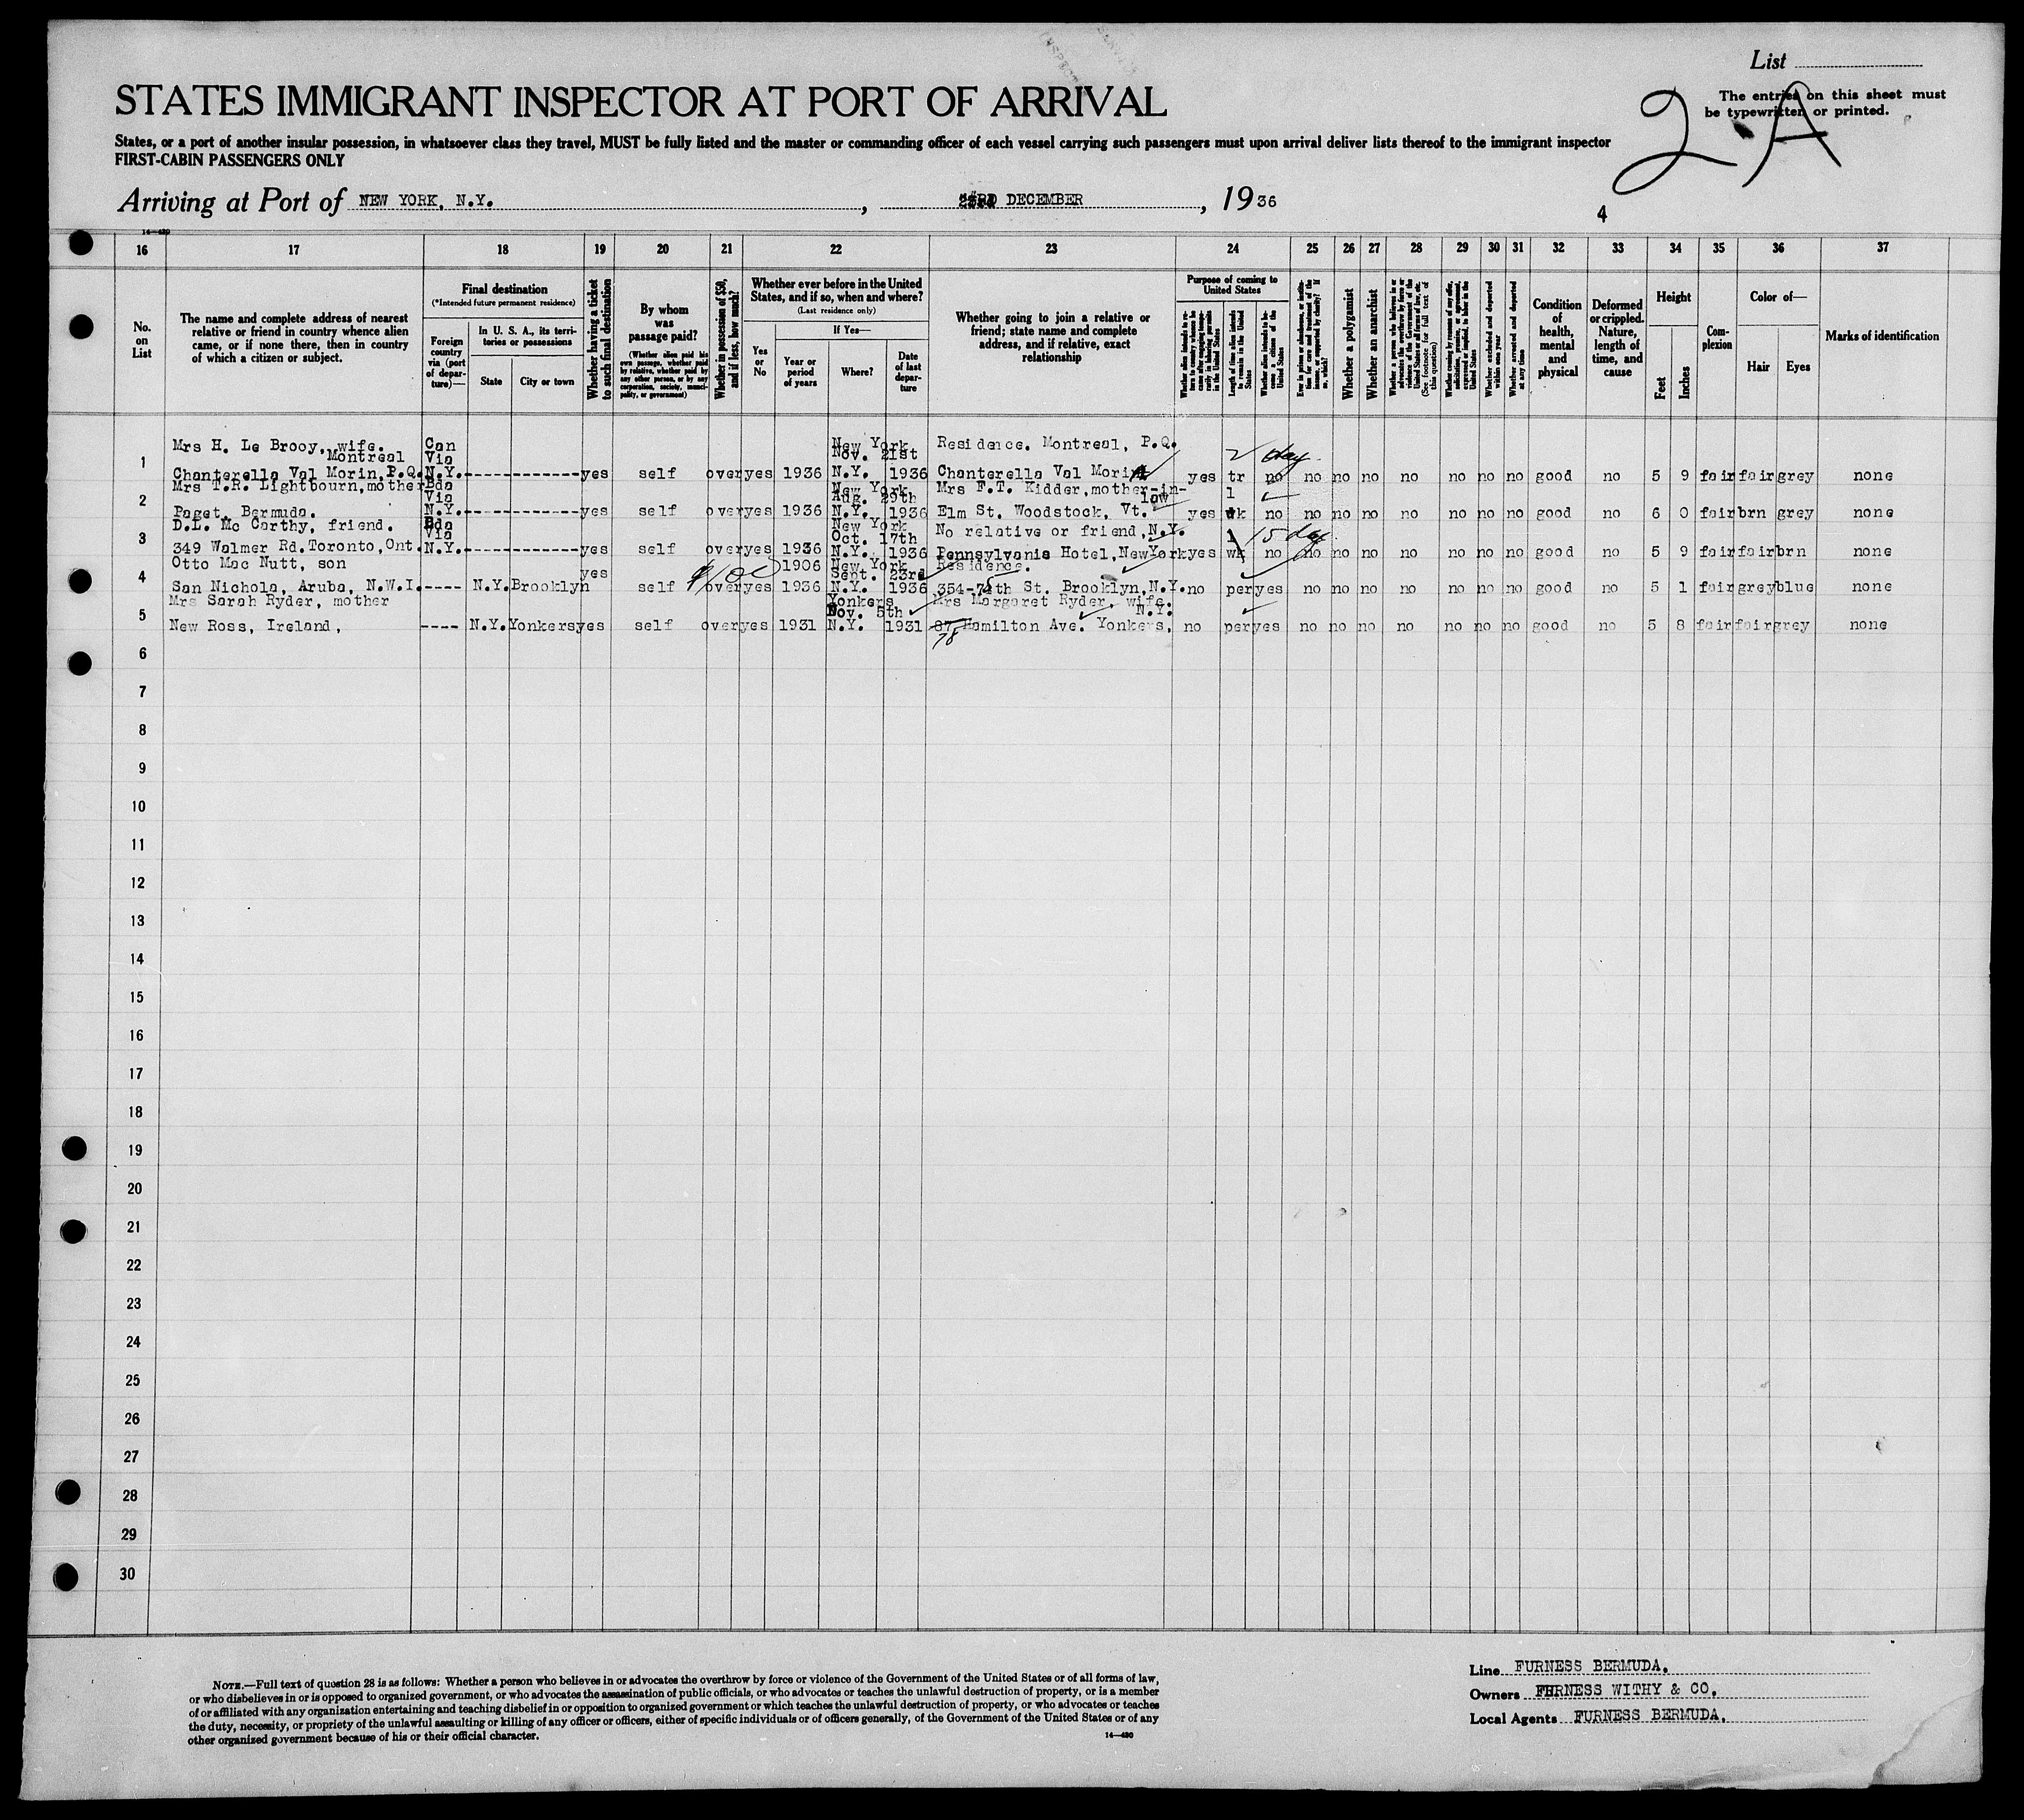 List
The entries on this sheet must
be typewritten or printed.
2-A
STATES IMMIGRANT INSPECTOR AT PORT OF ARRIVAL
States, or a port of another insular possession, in whatsoever class they travel, MUST be fully listed and the master or commanding officer of each vessel carrying such passengers must upon arrival deliver lists thereof to the immigrant inspector
FIRST-CABIN PASSENGERS ONLY
Arriving at Port of NEW YORK, N.Y. , DECEMBER , 1936
4
14—430
16 17 18 19 20 21 22 23 24 25 26 27 28 29 30 31 32 33 34 35 36 37
No. on List
The name and complete address of nearest relative or friend in country whence alien came, or if none there, then in country of which a citizen or subject.
Final destination
(*Intended future permanent residence)
Foreign country via (port of departure)—
In U. S. A., its territories or possessions
State
City or town
Whether having a ticket to such final destination
By whom was passage paid?
(Whether alien paid his own passage, whether paid by relative, whether paid by any other person, or by any corporation, society, municipality, or government)
Whether in possession of $50, and if less, how much?
Whether ever before in the United States, and if so, when and where?
(Last residence only)
Yes or No
If Yes—
Year or period of years
Where?
Date of last departure
Whether going to join a relative or friend; state name and complete address, and if relative, exact relationship
Purpose of coming to United States
Whether alien intends to return to country whence he came after engaging temporarily in laboring pursuits in the United States
Length of time alien intends to remain in the United States
Whether alien intends to become a citizen of the United States
Ever in prison or almshouse, or institution for care and treatment of the insane, or supported by charity? If so, which?
Whether a polygamist
Whether an anarchist
Whether a person who believes in or advocates the overthrow by force or violence of the Government of the United States or all forms of law, etc. (See footnote for full text of this question)
Whether coming by reason of any offer, solicitation, promise, or agreement, expressed or implied, to labor in the United States
Whether excluded and deported within one year
Whether arrested and deported at any time
Condition of health, mental and physical
Deformed or crippled. Nature, length of time, and cause
Height
Feet
Inches
Complexion
Color of—
Hair
Eyes
Marks of identification
Mrs H. Le Brooy, wife. Can New York Residence. Montreal, P.Q.
Montreal Via Nov. 21st 2 day
1 Chanterella Val Morin, P.Q. N.Y. ------------ yes self over yes 1936 N.Y. 1936 Chanterella Val Morin yes tr no no no no no no no no good no 5 9 fair fair grey none
Mrs T.R. Lightbourn, mother Bda New York Mrs F.T. Kidder, mother-in-
Via Aug. 29th law 1
2 Paget, Bermuda. N.Y. ------------ yes self over yes 1936 N.Y. 1936 Elm St. Woodstock, Vt. yes wk no no no no no no no no good no 6 0 fair brn grey none
D.L. Mc Carthy, friend. Bda New York No relative or friend, N.Y.
Via Oct. 17th 1 15 day
3 349 Walmer Rd. Toronto, Ont. N.Y. ------------ yes self over yes 1936 N.Y. 1936 Pennsylvania Hotel, New York yes wk no no no no no no no no good no 5 9 fair fair brn none
Otto Mac Nutt, son 1906 New York Residence.
yes Sept. 23rd
4 San Nichola, Aruba, N.W.I. ---- N.Y. Brooklyn self over yes 1936 N.Y. 1936 354-74th St. Brooklyn, N.Y. no per yes no no no no no no no good no 5 1 fair grey blue none
Mrs Sarah Ryder, mother Yonkers Mrs Margaret Ryder, wife.
Nov. 5th N.Y.
5 New Ross, Ireland, ---- N.Y. Yonkers yes self over yes 1931 N.Y. 1931 87 Hamilton Ave. Yonkers, no per yes no no no no no no no good no 5 8 fair fair grey none
78
6
7
8
9
10
11
12
13
14
15
16
17
18
19
20
21
22
23
24
25
26
27
28
29
30
NOTE.—Full text of question 28 is as follows: Whether a person who believes in or advocates the overthrow by force or violence of the Government of the United States or of all forms of law,
or who disbelieves in or is opposed to organized government, or who advocates the assassination of public officials, or who advocates or teaches the unlawful destruction of property, or is a member
of or affiliated with any organization entertaining and teaching disbelief in or opposition to organized government or which teaches the unlawful destruction of property, or who advocates or teaches
the duty, necessity, or propriety of the unlawful assaulting or killing of any officer or officers, either of specific individuals or of officers generally, of the Government of the United States or of any
other organized government because of his or their official character.
14—430
Line FURNESS BERMUDA.
Owners FURNESS WITHY & CO.
Local Agents FURNESS BERMUDA.